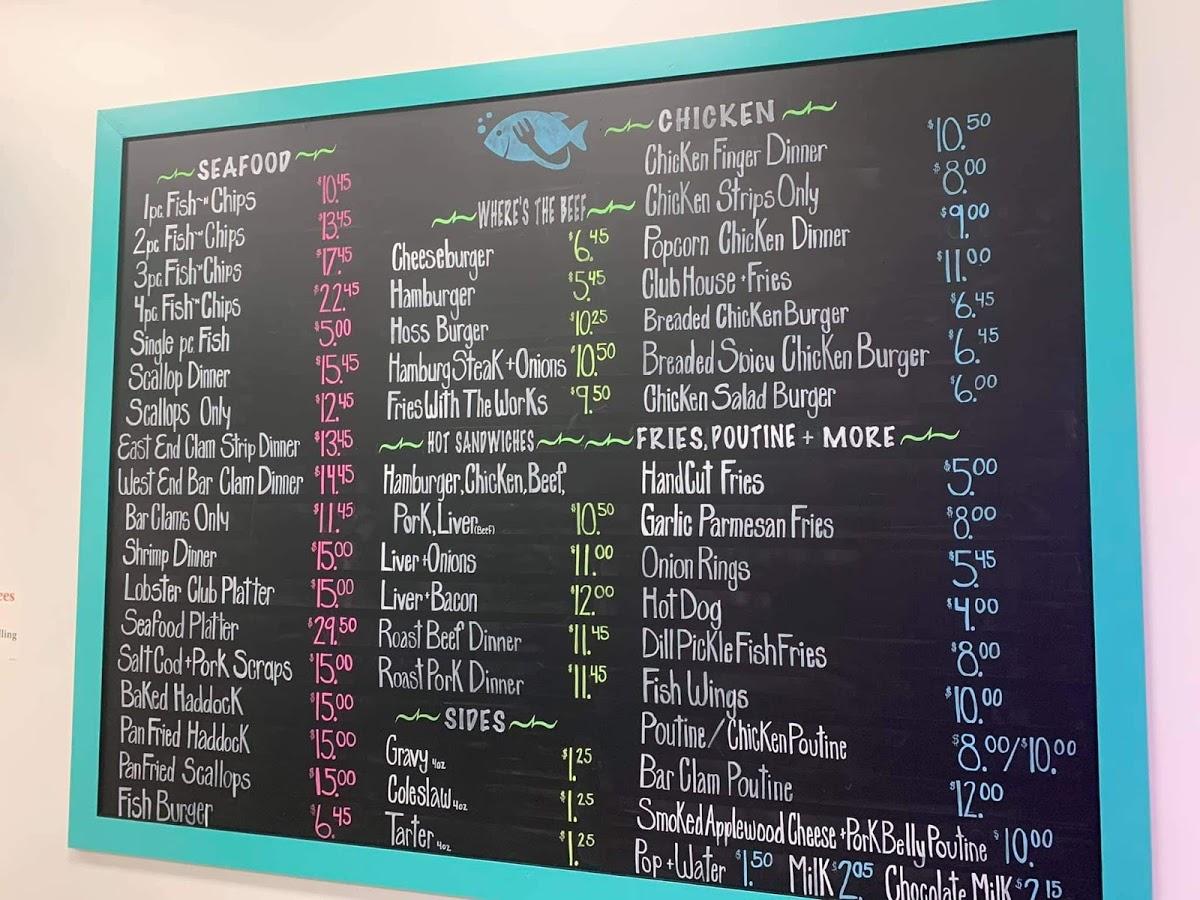 SEAFOOD
1pc. Fish~N Chips $10.45
2pc Fish~N Chips $13.45
3pc Fish~N Chips $17.45
4pc Fish~N Chips $22.45
Single pc. Fish $5.00
Scallop Dinner $15.45
Scallops Only $12.45
East End Clam Strip Dinner $13.45
West End Bar Clam Dinner $14.45
Bar Clams Only $11.45
Shrimp Dinner $15.00
Lobster Club Platter $15.00
Seafood Platter $29.50
Salt Cod + Pork Scraps $15.00
Baked Haddock $15.00
Pan Fried Haddock $15.00
Pan Fried Scallops $15.00
Fish Burger $6.45
WHERE'S THE BEEF
Cheeseburger $6.45
Hamburger $5.45
Hoss Burger $10.25
Hamburg Steak + Onions $10.50
Fries With The Works $9.50
HOT SANDWICHES
Hamburger, Chicken, Beef,
Pork, Liver (Beef) $10.50
Liver + Onions $11.00
Liver + Bacon $12.00
Roast Beef Dinner $11.45
Roast Pork Dinner $11.45
SIDES
Gravy 4oz $1.25
Coleslaw 4oz $1.25
Tarter 4oz $1.25
CHICKEN
Chicken Finger Dinner $10.50
Chicken Strips Only $8.00
Popcorn Chicken Dinner $9.00
Club House + Fries $11.00
Breaded Chicken Burger $6.45
Breaded Spicy Chicken Burger $6.45
Chicken Salad Burger $6.00
FRIES, POUTINE + MORE
Hand Cut Fries $5.00
Garlic Parmesan Fries $8.00
Onion Rings $5.45
Hot Dog $4.00
Dill Pickle Fish Fries $8.00
Fish Wings $10.00
Poutine / Chicken Poutine $8.00/$10.00
Bar Clam Poutine $12.00
Smoked Applewood Cheese + Pork Belly Poutine $10.00
Pop + Water $1.50 Milk $2.05 Chocolate Milk $2.15